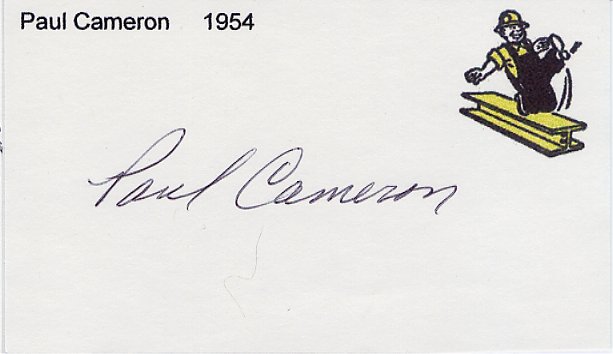 Paul Cameron 1954
Paul Cameron